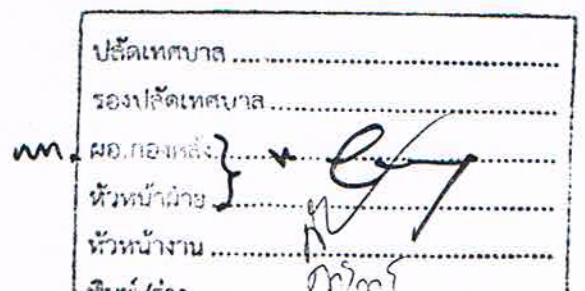 ปลัดเทศบาล
รองปลัดเทศบาล
ผอ.กองคลัง
หัวหน้าฝ่าย
หัวหน้างาน